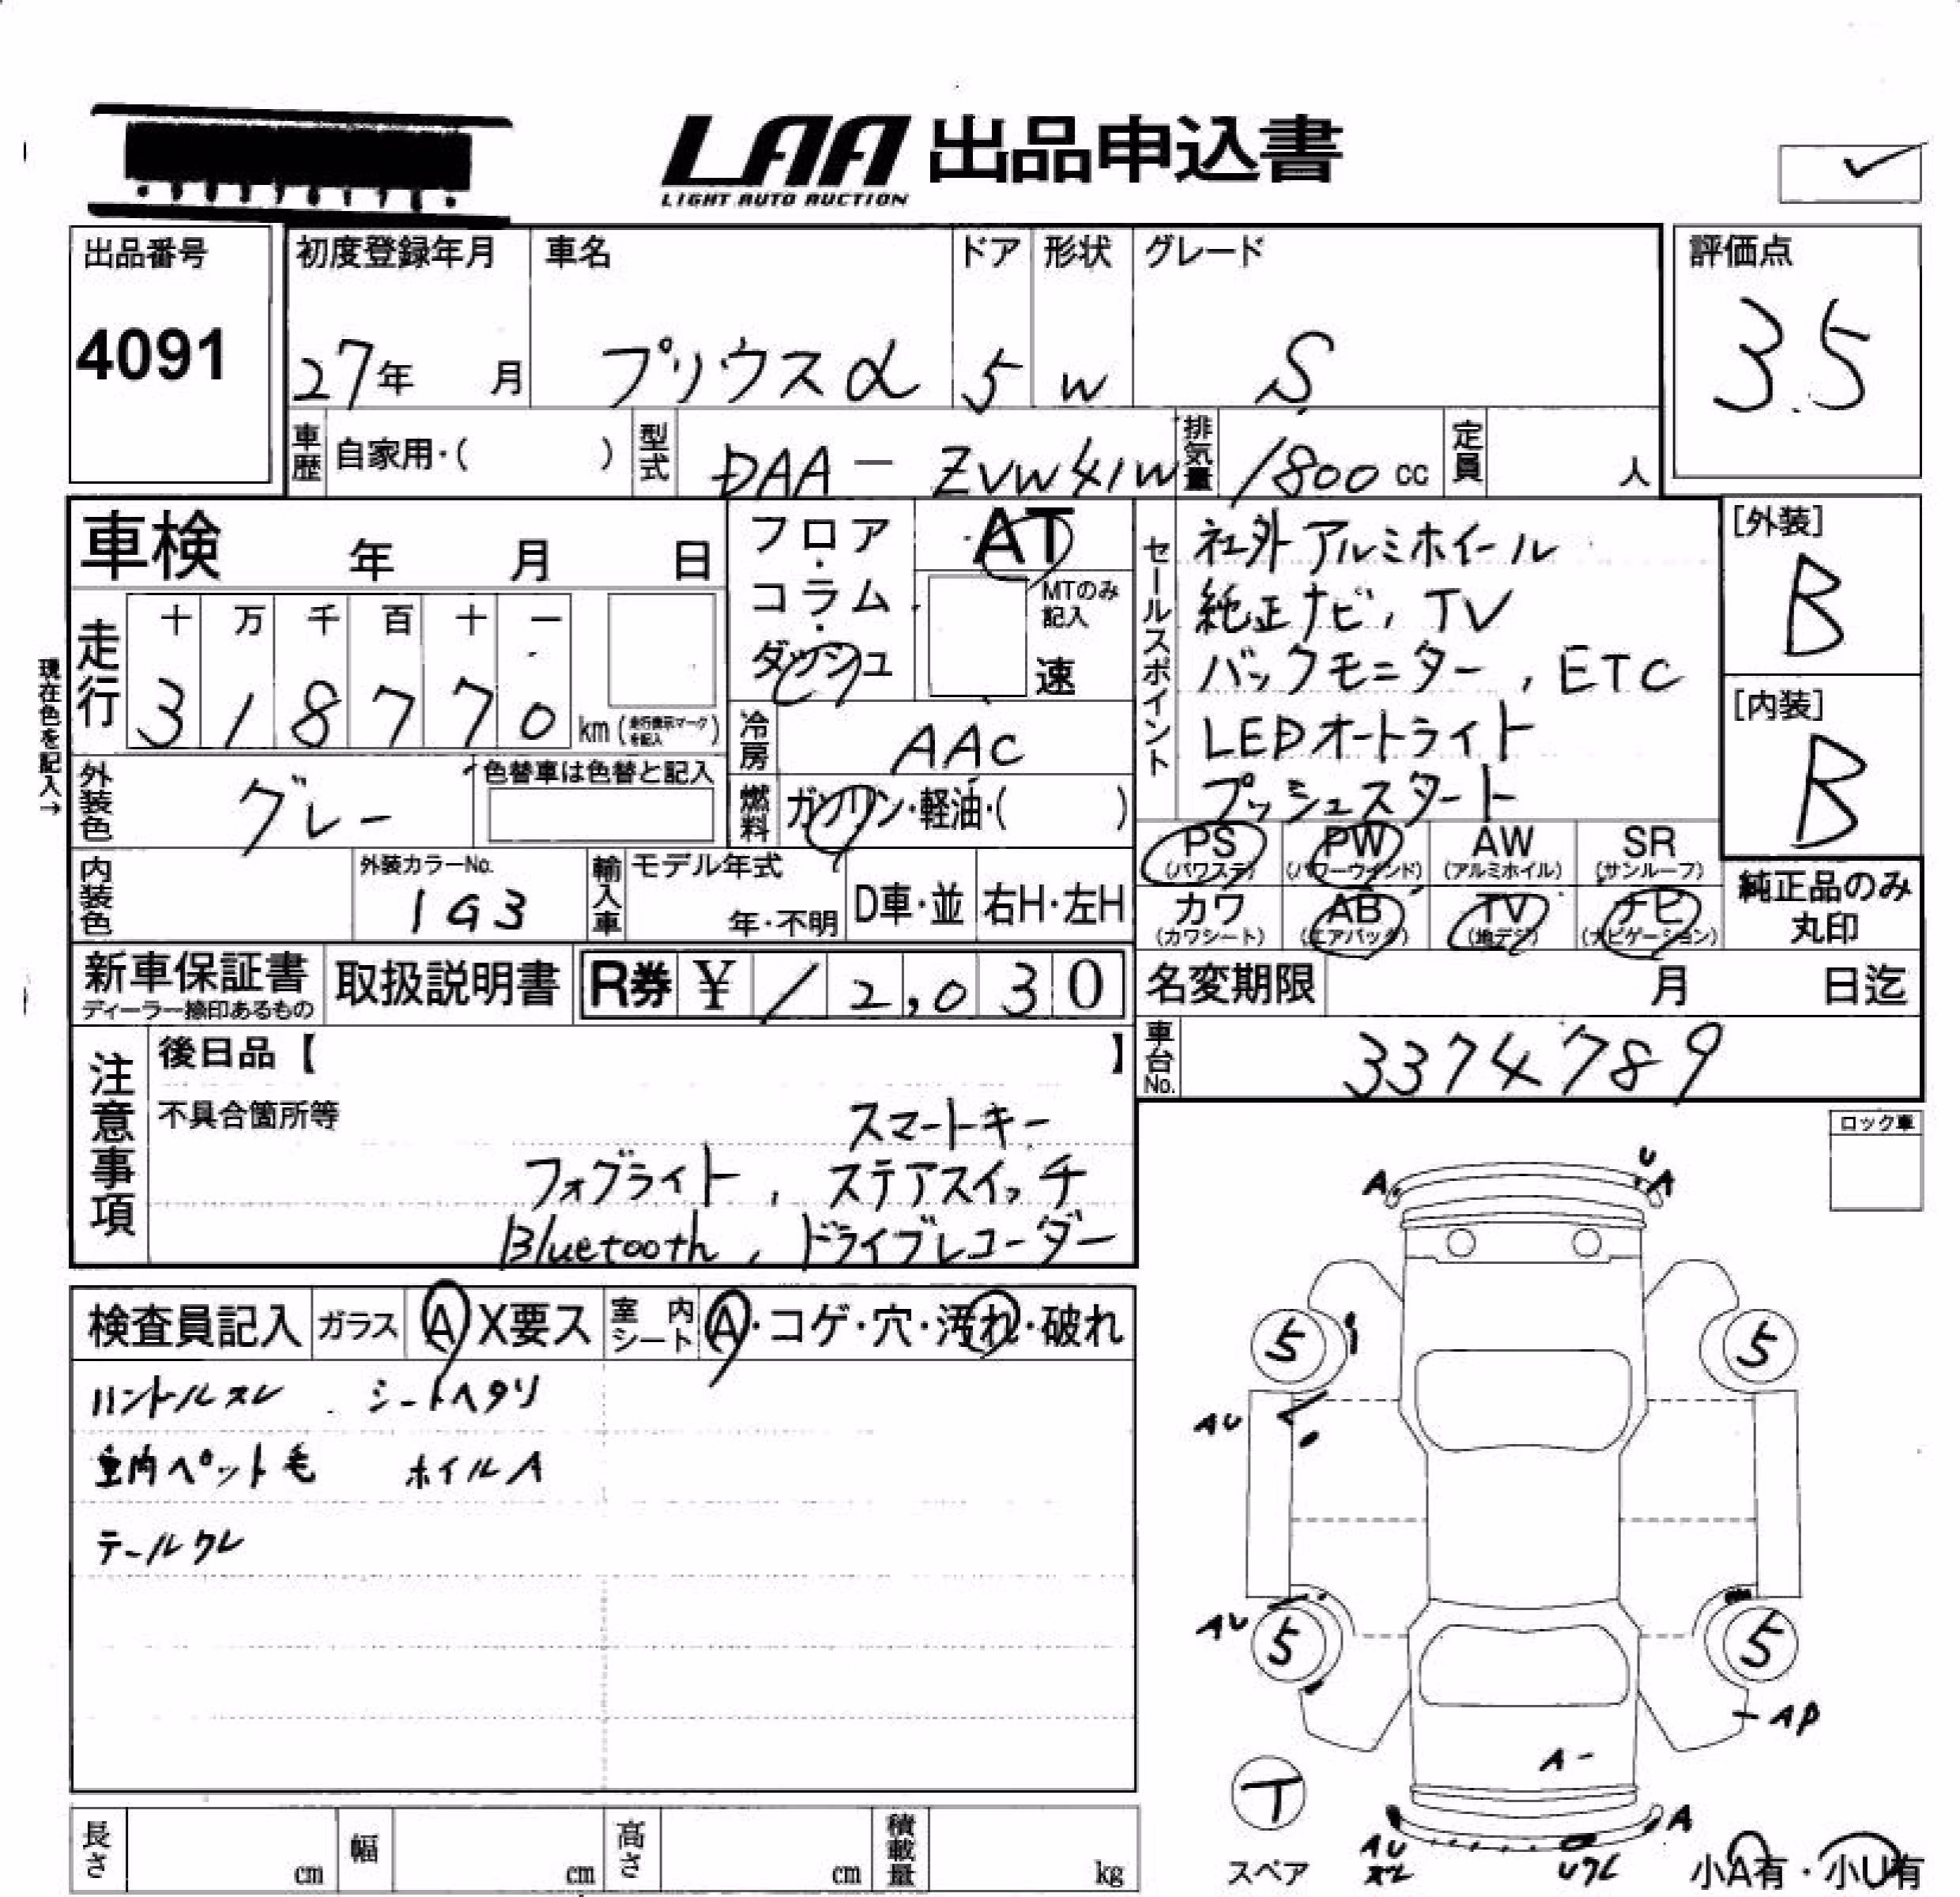 LAA 出品申込書
LIGHT AUTO AUCTION
出品番号
4091
初度登録年月
27年 月
車名
プリウスα
ドア
5
形状
W
グレード
S
評価点
3.5
車歴 自家用・( )
型式 DAA-ZVW41W
排気量 1800cc
定員 人
車検 年 月 日
フロア・コラム・ダッシュ
AT
MTのみ記入
速
セールスポイント
社外アルミホイール
純正ナビ, TV
バックモニター, ETC
LEDオートライト
プッシュスタート
[外装]
B
[内装]
B
現在色を記入→
走行
十 万 千 百 十 一
3 1 8 7 7 0 km (走行表示マークを記入)
冷房 AAC
外装色 グレー
色替車は色替と記入
燃料 ガソリン・軽油・( )
PS (パワステ) PW (パワーウインド) AW (アルミホイル) SR (サンルーフ)
カワ (カワシート) AB (エアバッグ) TV (地デジ) ナビ (ナビゲーション)
純正品のみ
丸印
内装色
外装カラーNo.
1G3
輸入車 モデル年式
年・不明
D車・並 右H・左H
新車保証書
ディーラー捺印あるもの
取扱説明書
R券 ¥12,030
名変期限 月 日迄
車台No. 3374789
注意事項
後日品【 】
不具合箇所等
スマートキー
フォグライト, ステアスイッチ
Bluetooth, ドライブレコーダー
ロック車
検査員記入 ガラス A X要ス 室内シート A・コゲ・穴・汚れ・破れ
ハンドルスレ シートヘタリ
室内ペット毛 ホイルA
テールワレ
A U A
5 5
AU
AU
5 5
AP
A-
T
スペア
A
AU
Uワレ
小A有・小U有
長さ cm 幅 cm 高さ cm 積載量 kg